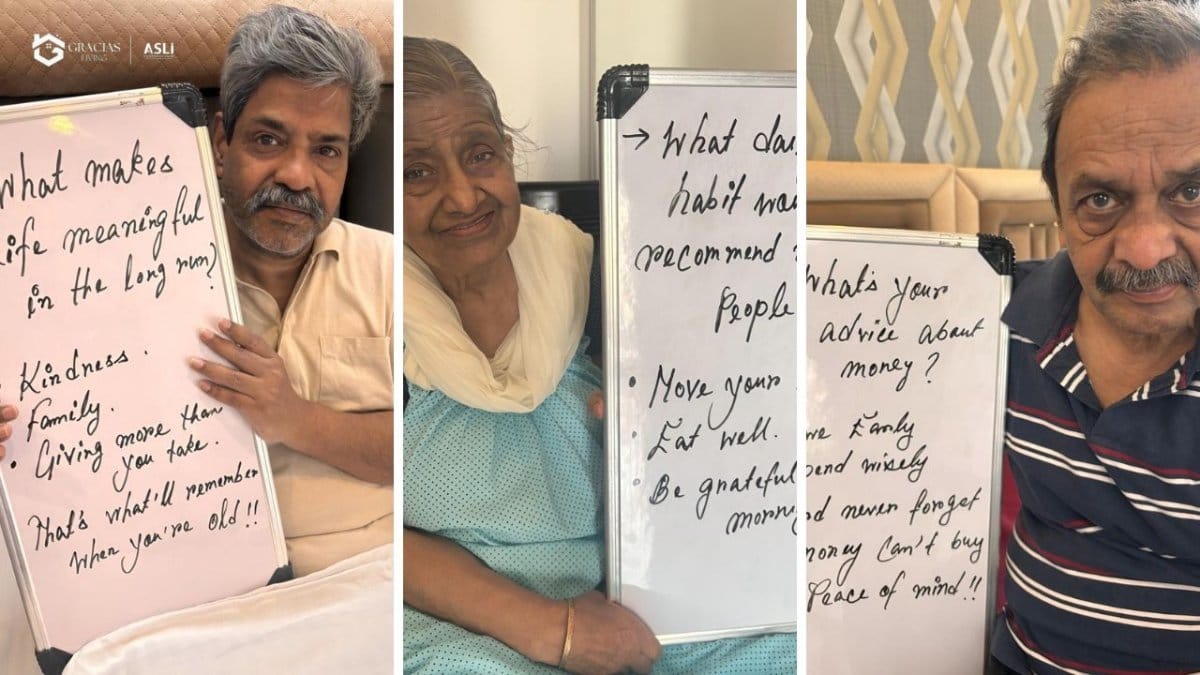 GRACIAS
LIVING
ASLI
What makes
life meaningful
in the long run?
Kindness.
Family.
Giving more than
you take.
That's what'll remember
when you're old!!
→ What
habit
recommend
People
Move your
Eat well.
Be grateful
What's your
advice about
money?
Early
wisely
never forget
money can't buy
Peace of mind!!